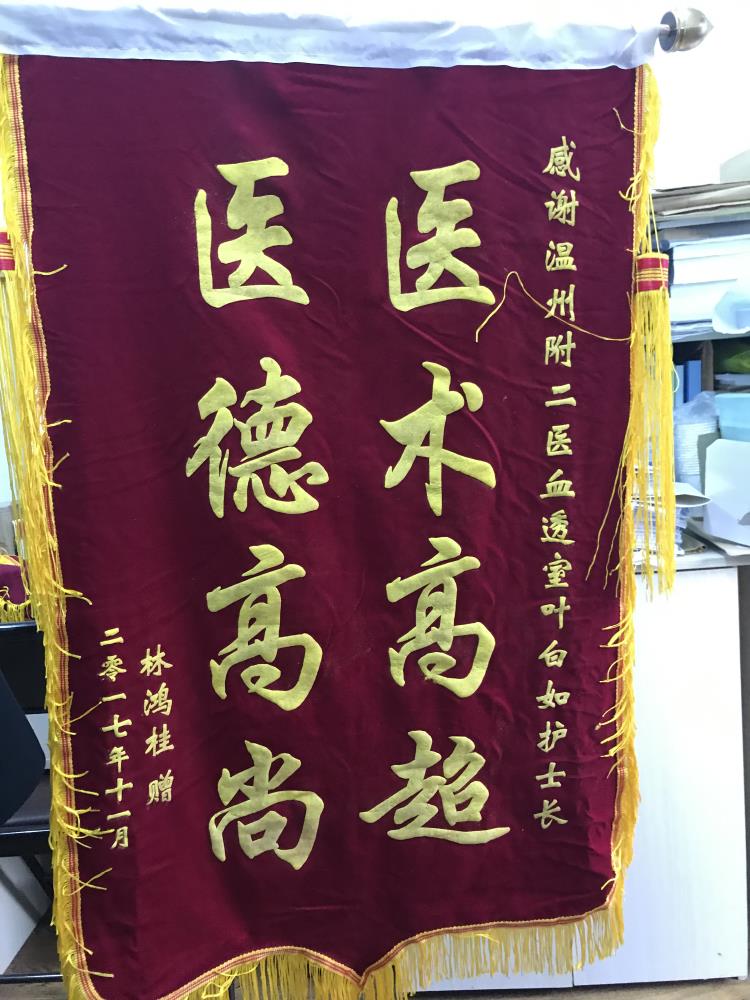 感谢温州附二医血透室叶白如护士长
医术高超
医德高尚
林鸿桂 赠
二零一七年十一月